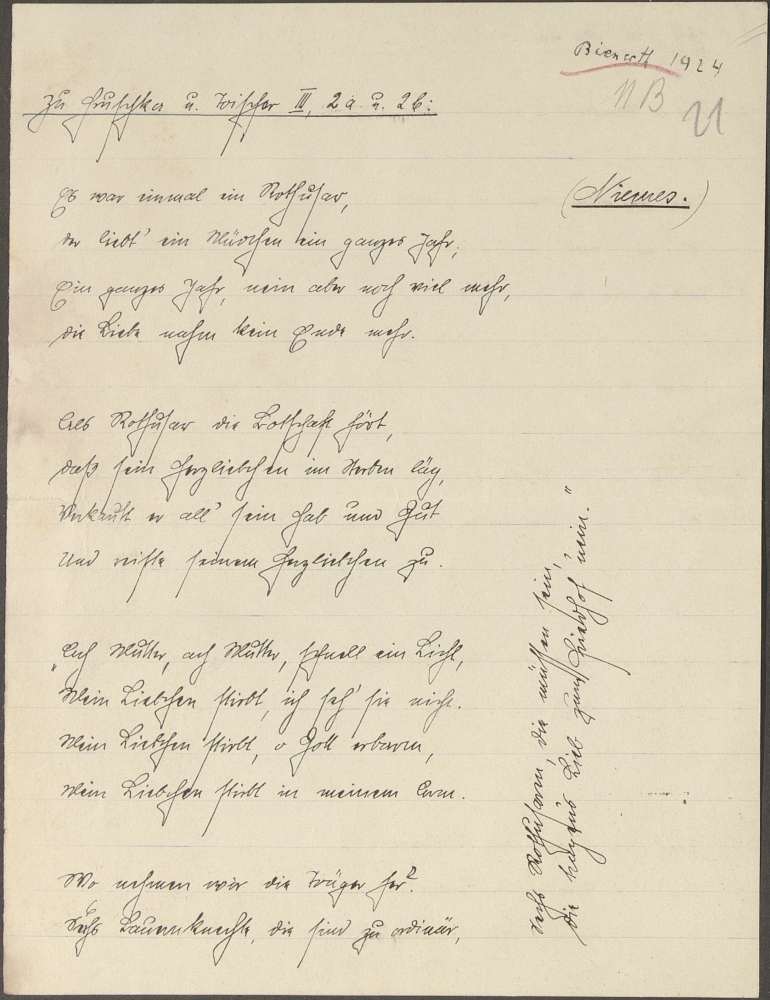 Bienert 1924
NB
Zu Hruschka u. Toischer III, 2a u. 2b:
(Niemes.)
Es war einmal ein Rothusar,
der liebt' ein Mädchen ein ganzes Jahr;
Ein ganzes Jahr, nein aber noch viel mehr,
die Liebe nahm kein Ende mehr.
Als Rothusar die Botschaft hört,
daß sein Herzliebchen im Sterben läg,
Verkauft er all' sein Hab und Gut
Und reiste seinem Herzliebchen zu.
„Ach Mutter, ach Mutter, schnell ein Licht,
Mein Liebchen stirbt, ich seh' sie nicht.
Mein Liebchen stirbt, o Gott erbarm,
Mein Liebchen stirbt in meinem Arm.
Wo nehmen wir die Träger her?
Sechs Bauernknechte, die sind zu ordinär,
Sechs Rothusaren, die müssen sein,
die tragen's Lieb zum Friedhof 'nein."